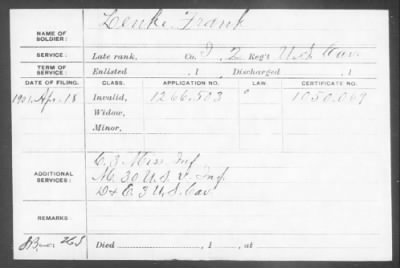 NAME OF SOLDIER: Lenke, Frank
SERVICE: Late rank, Co. I, 2 Reg't U.S. Cav.
TERM OF SERVICE: Enlisted , 1 Discharged , 1
DATE OF FILING. CLASS. APPLICATION NO. LAW. CERTIFICATE NO.
1901, Apr. 18 Invalid, 1266,503 1050,069
Widow,
Minor,
C. 3 Miss Inf
ADDITIONAL SERVICES: M. 30 U.S. V. Inf.
D & E. 3 U.S. Cav.
REMARKS:
Died , 1 , at